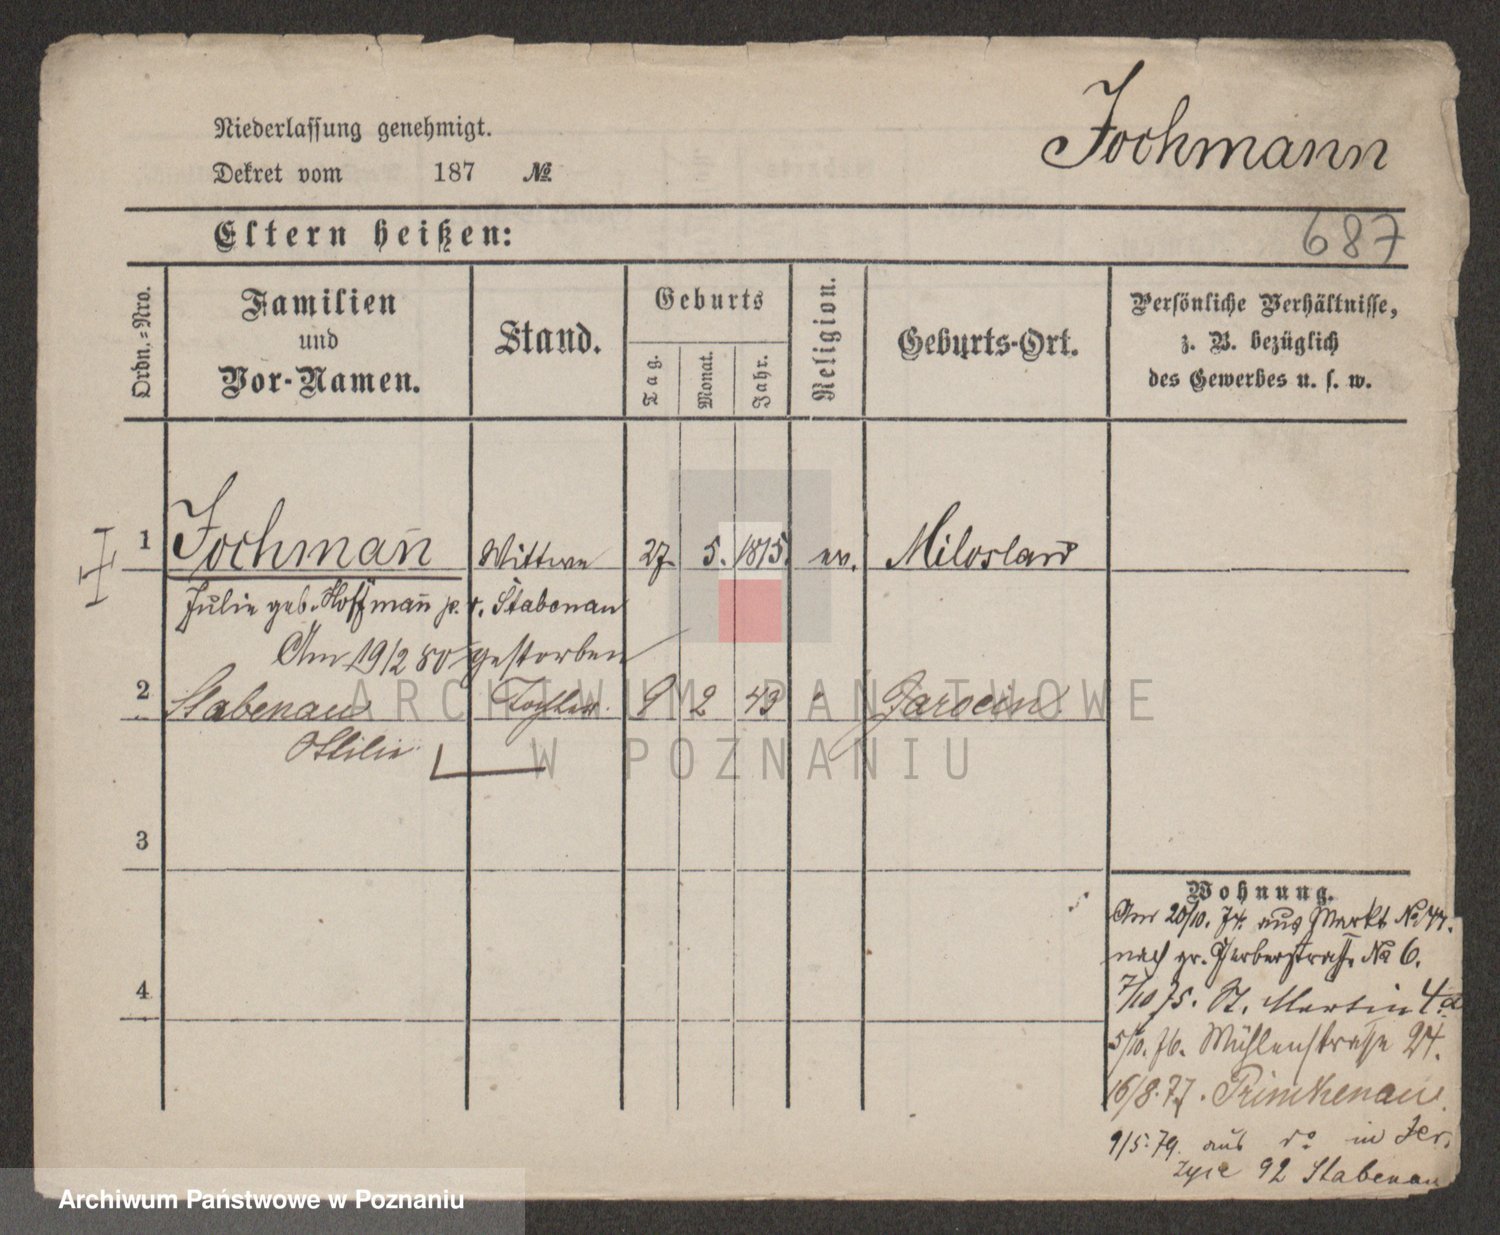 Jochmann
Niederlassung genehmigt.
Dekret vom 187 №
Eltern heißen:
687
Ordn.=Nro.
Familien
und
Vor-Namen.
Stand.
Geburts
Tag.
Monat.
Jahr.
Religion.
Geburts-Ort.
Persönliche Verhältnisse,
z. B. bezüglich
des Gewerbes u. s. w.
1 Jochmañ Wittwe 27. 5. 1815. ev. Miloslaw
Julie geb. Hoffmañ p. r. Stabenau
Am 19/2 80 gestorben
2 Stabenau Tochter 9 2 43 " Jarocin
Ottilie
3
4
Wohnung.
Am 20/10. 74. aus Markt № 77.
nach gr. Gerberstraße № 6.
7/10 75. St. Martin 4a
5/10. 76. Mühlenstraße 24.
16/8. 77. Primkenau.
9/5. 79. aus do in Jer-
zyce 92 Stabenau
ARCHIWUM PAŃSTWOWE
W POZNANIU
Archiwum Państwowe w Poznaniu